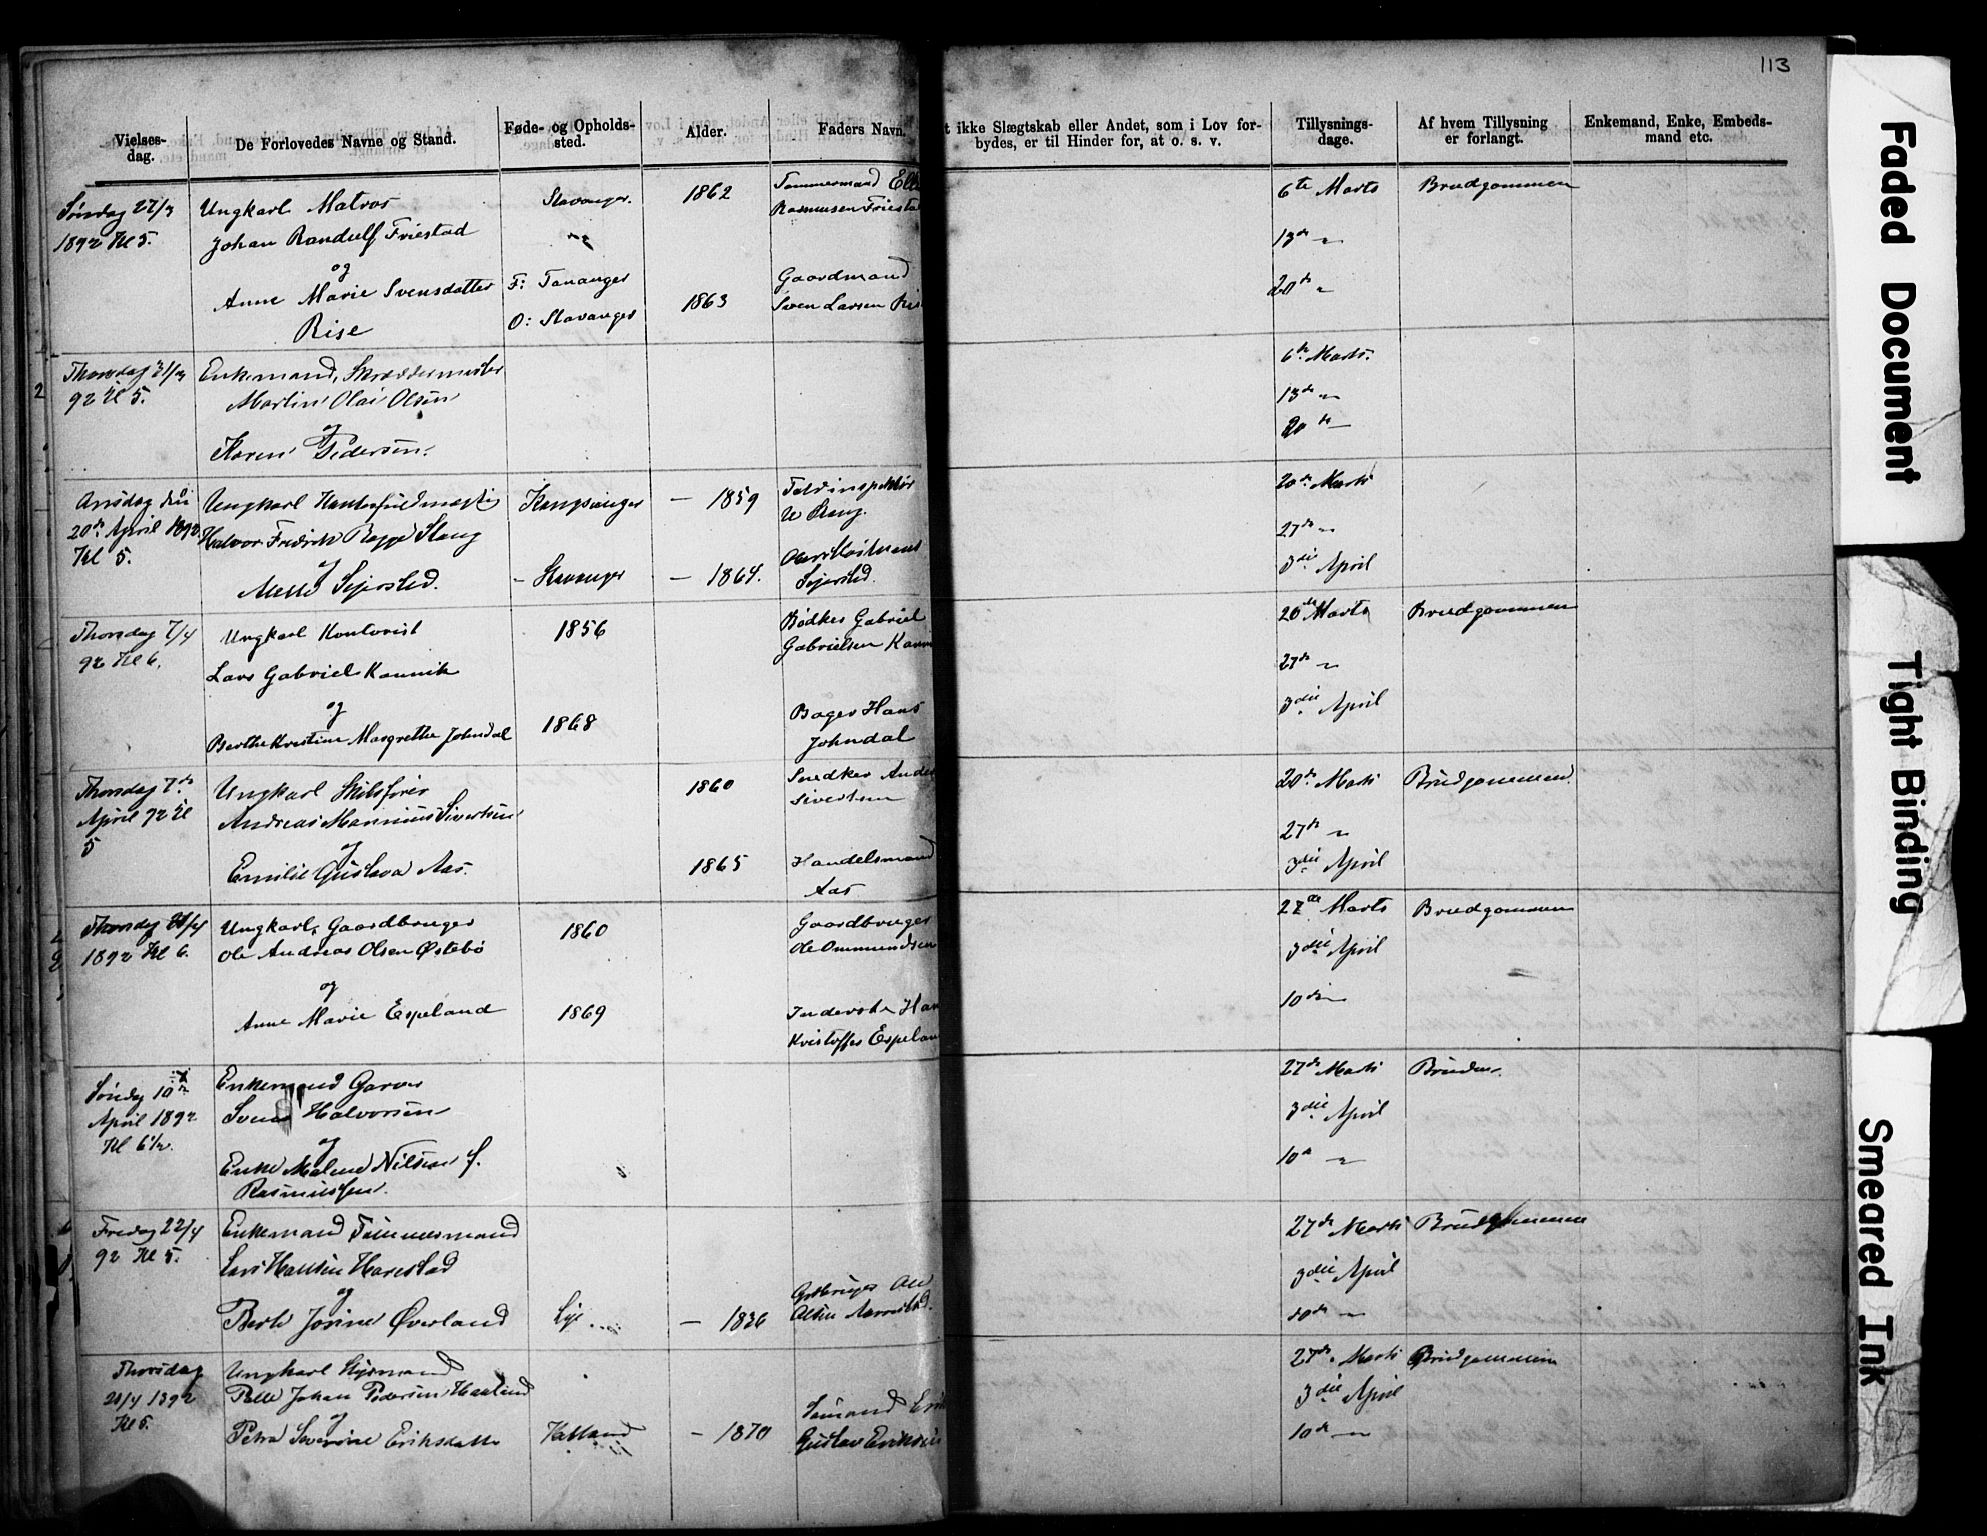 113
Vielses-
dag.
De Forlovedes Navne og Stand.
Føde- og Opholds-
sted.
Alder.
Faders Navn.
t ikke Slægtskab eller Andet, som i Lov for-
bydes, er til Hinder for, at o. s. v.
Tillysnings-
dage.
Af hvem Tillysning
er forlangt.
Enkemand, Enke, Embeds-
mand etc.
Søndag 27/3
1892 Kl 5.
Ungkarl Matros
Johan Randulf Friestad
og
Anne Marie Svensdatter
Rise
Stavanger.
F: Tananger
O: Stavanger
1862
1863
Tømmermand
Rasmussen
Gaardmand
Sven Larsen
6te Marts
13de "
20de "
Brudgommen
Thorsdag 31/3
92 Kl 5.
Enkemand, Skræddermester
Martin Olai Olsen
og
Karen Pedersen.
6te Marts.
13de "
20de "
Onsdag den
20de April 1892
Kl 5.
Ungkarl
Halvor Fredrik Stang
og
Sejersted.
Kongsvinger
- Stavanger
- 1859
- 1864.
Toldinspektør
Stang.
Sejersted.
20de Marts
27de "
3die April
Thorsdag 7/4
92 Kl 6.
Ungkarl Kontorist
Lars Gabriel Kannik
og
Berthe Kristine Margrethe Johndal
1856
1868
Bødker Gabriel
Gabrielsen
Bager Hans
Johndal
20de Marts
27de "
3die April
Brudgommen
Thorsdag 7de
April 92 Kl
5
Ungkarl Skibsfører
Andreas Marinius Sivertsen
og
Emilie Gustava Aas.
1860
1865
Snedker
Sivertsen
Handelsmand
Aas
20de Marts
27de "
3die April
Brudgommen.
Thorsdag
1892 Kl 6.
Ungkarl, Gaardbruger
Ole Andreas Olsen Østebø
og
Anne Marie Espeland
1860
1869
Gaardbruger
Ole Ommundsen
Inderste
Kristoffer
27de Marts
3die April
10de "
Brudgommen
Søndag 10de
April 1892
Kl 6½.
Enkemand Garver
Svend Halvorsen
og
Enke Malene Nilsen f.
Rasmussen.
27de Marts
3die April
10de "
Bruden.
Fredag 22/4
92 Kl 5.
Enkemand Tømmermand
Lars Hansen Harestad
og
Berte Jorine Øverland
Lye
- 1836
Olsen
27de Marts
3die April
10de "
Brudgommen
Thorsdag
21/4 1892
Kl 5.
Ungkarl Styrmand
Pelle Johan Pedersen Haaland
og
Petra Severine Eriksdatter
- 1870
Sømand
Gustav Eriksen
27de Marts
3die April
10de "
Brudgommen
Faded Document
Tight Binding
Smeared Ink